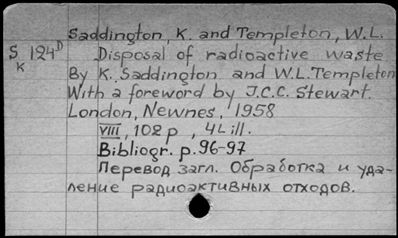 Saddington, K. and Templeton, W.L.
S 124D Disposal of radioactive waste
K
By K. Saddington and W.L. Templeton
With a foreword by J.C.C. Stewart.
London, Newnes, 1958
VIII, 102 p , 4L ill.
Bibliogr. p. 96-97
Перевод загл. Обработка и уда-
ление радиоактивных отходов.